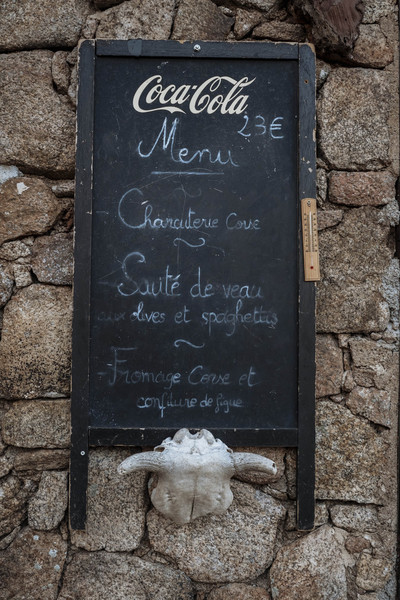 Coca-Cola
23€
Menu
Charcuterie Corse
Sauté de veau
aux olives et spaghettis
Fromage Corse et
confiture de figue